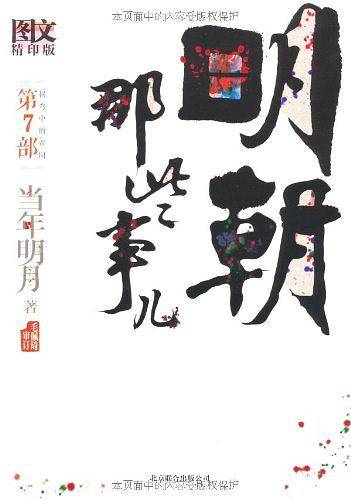 本页面中的内容受版权保护
图文
精印版
明朝
那些事儿
第7部
当年明月
著
毛佩琦
审订
北京联合出版公司
本页面中的内容受版权保护